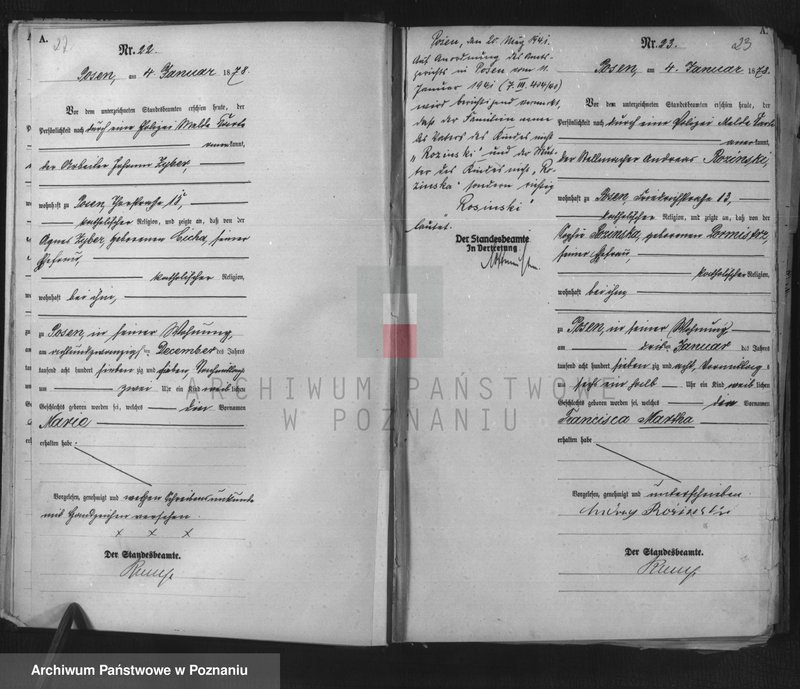 A.
22
Nr. 22.
Posen, am 4 Januar 1878.
Vor dem unterzeichneten Standesbeamten erschien heute, der
Persönlichkeit nach durch eine Polizei Melde Karte
anerkannt,
der Arbeiter Johann Zyber,
wohnhaft zu Posen, 15,
katholischer Religion, und zeigte an, daß von der
Agnes Zyber, geborenen seiner
Ehefrau,
katholischer Religion,
wohnhaft bei ihm,
zu Posen, in seiner Wohnung,
am achtundzwanzigsten December des Jahres
tausend acht hundert sieben zig und sieben, Nachmittags
um zwei Uhr ein Kind weiblichen
Geschlechts geboren worden sei, welches den Vornamen
Marie
erhalten habe.
Vorgelesen, genehmigt und wegen Schreibensunkunde
mit Handzeichen versehen.
x x x
Der Standesbeamte.
Posen, den 20. März 1941.
Auf Anordnung des Amts-
gerichts in Posen vom 11.
Januar 1941 (7. III. 404/40)
wird berichtigend vermerkt,
daß der Familienname
des Vaters des Kindes nicht
„Rozinski" und der Mut-
ter des Kindes nicht „Ro-
zinska" sondern richtig
Rosinski"
lautet.
Der Standesbeamte
In Vertretung
A.
23
Nr. 23.
Posen, am 4. Januar 1878.
Vor dem unterzeichneten Standesbeamten erschien heute, der
Persönlichkeit nach durch eine Polizei Melde Karte
anerkannt,
der Stellmacher Andreas Rozinski,
wohnhaft zu Posen, Friedrichstraße 13,
katholischer Religion, und zeigte an, daß von der
Sophie Rozinska, geborenen
seiner Ehefrau
katholischer Religion,
wohnhaft bei ihm
zu Posen, in seiner Wohnung
am drit ten Januar des Jahres
tausend acht hundert sieben zig und acht, Vormittags
um sechs ein halb Uhr ein Kind weiblichen
Geschlechts geboren worden sei, welches den Vornamen
Francisca Martha
erhalten habe.
Vorgelesen, genehmigt und unterschrieben.
Andrzy Rozinski
Der Standesbeamte.
ARCHIWUM PAŃSTWOWE
W POZNANIU
Archiwum Państwowe w Poznaniu